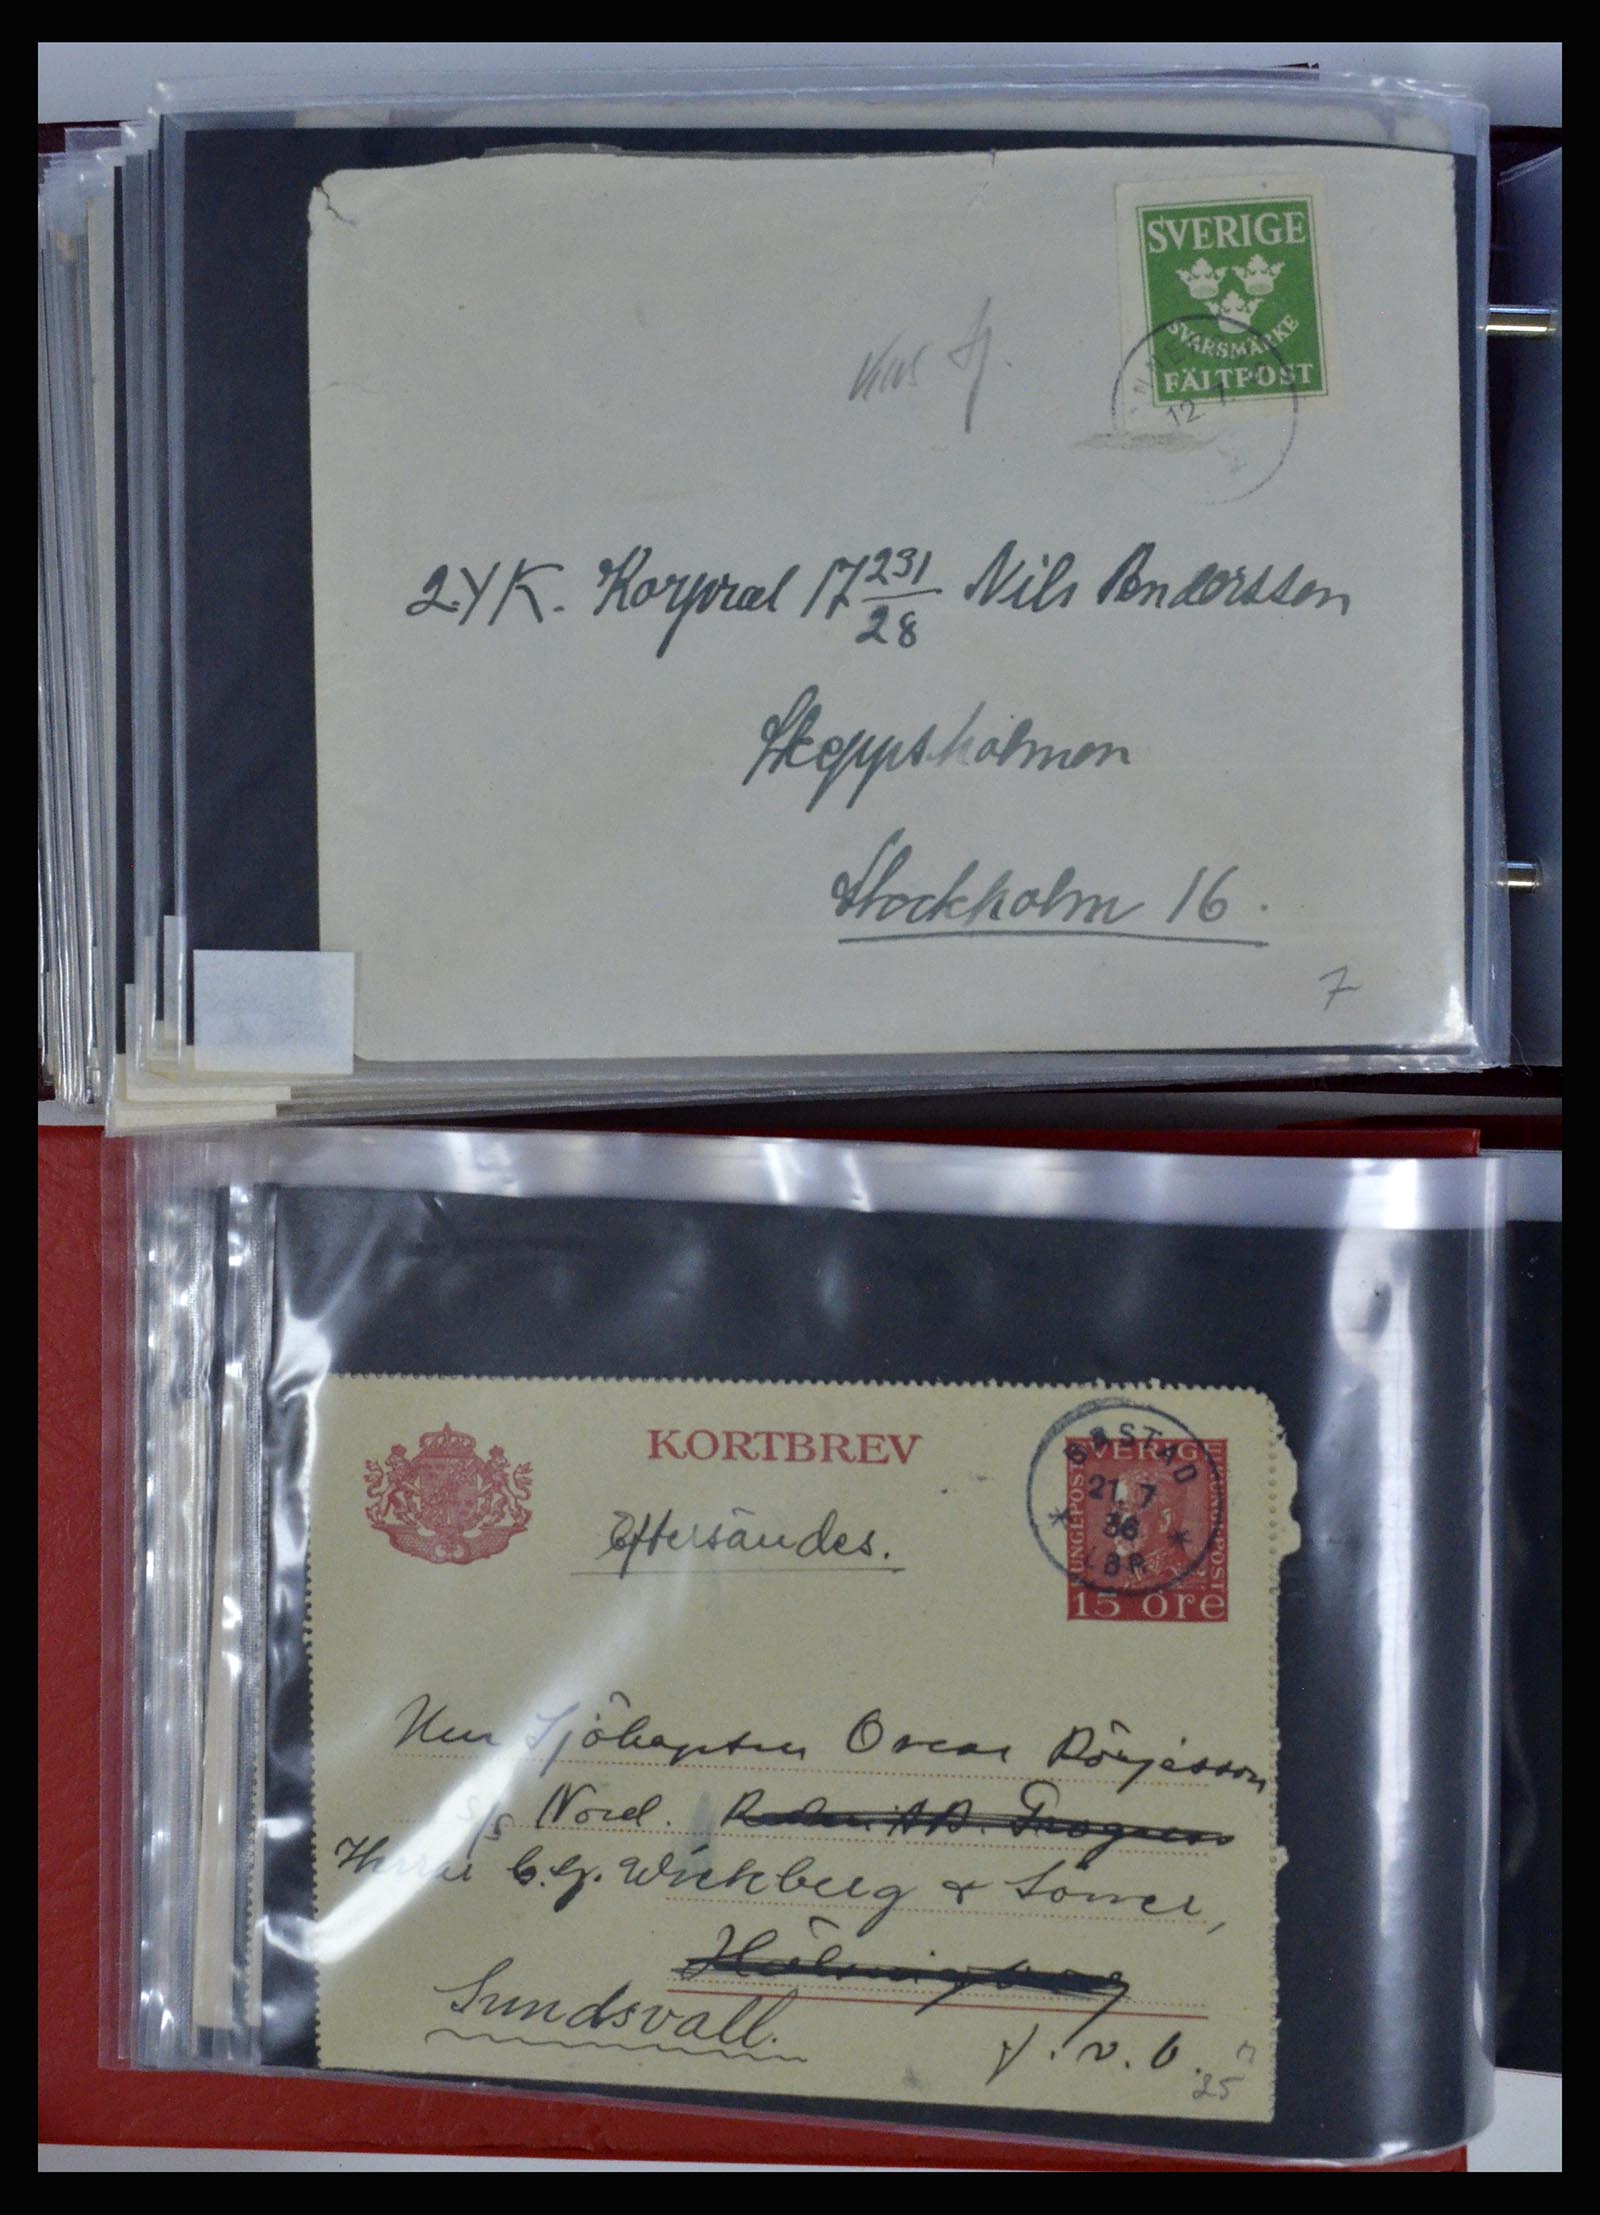 SVERIGE
SVARSMÄRKE
FÄLTPOST
12. 7.
2YK. Korpral 17 231/28 Nils Anderssen
Skeppsholmen
Stockholm 16.
7
KORTBREV
SVERIGE
KUNGEPOST
KUNGPOST
15 öre
BÅSTAD
21. 7
36
LBR
Eftersändes.
Herr Sjökapten Oscar Börjesson
s/s Nord.
Herrar C. G. Wickberg & Söner,
Hälsingborg
Sundsvall.
f. v. b.
25